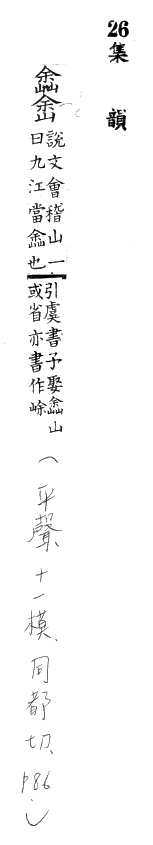 26
集韻
嵞峹
說文會稽山一
曰九江當嵞也
引虞書予娶嵞山
或省亦書作
（平聲、十一模、同都切、P86.）